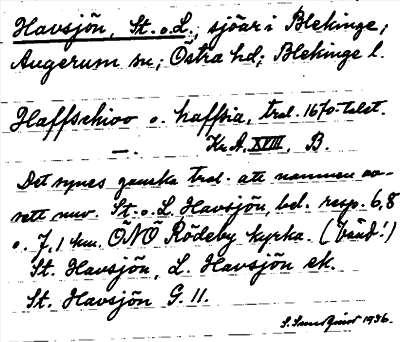 Havsjön, St. o. L., sjöar i Blekinge;
Augerum sn; Östra hd; Blekinge l.
Haffschioo o. haffsia, trol. 1670-talet.
—. Kr.A. XVIII, B.
Det synes ganska trol. att namnen av-
sett nuv. St. o. L. Havsjön, bel. resp. 6,8
o. 7,1 km. ONÖ Rödeby kyrka. (Vänd!)
St. Havsjön, L. Havsjön ek.
St. Havsjön G. 11.
1936.